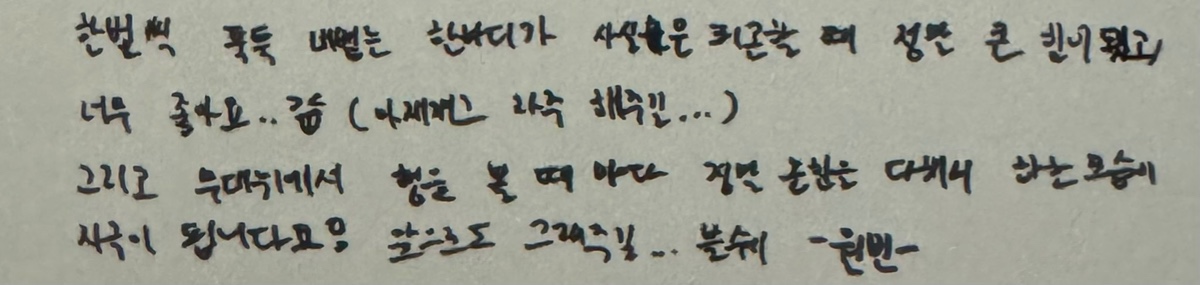 한번씩 푹푹 뱉는 한마디가 사실은 피곤할 때 정말 큰 힘이 됐고
너무 좋아요.. 큼 (아재개그 자주 해주길...)
그리고 무대위에서 형을 볼 때 마다 정말 혼신을 다해서 하는 모습이
자극이 됩니다요용 앞으로도 그래주길... 쀨쓔 -원빈-